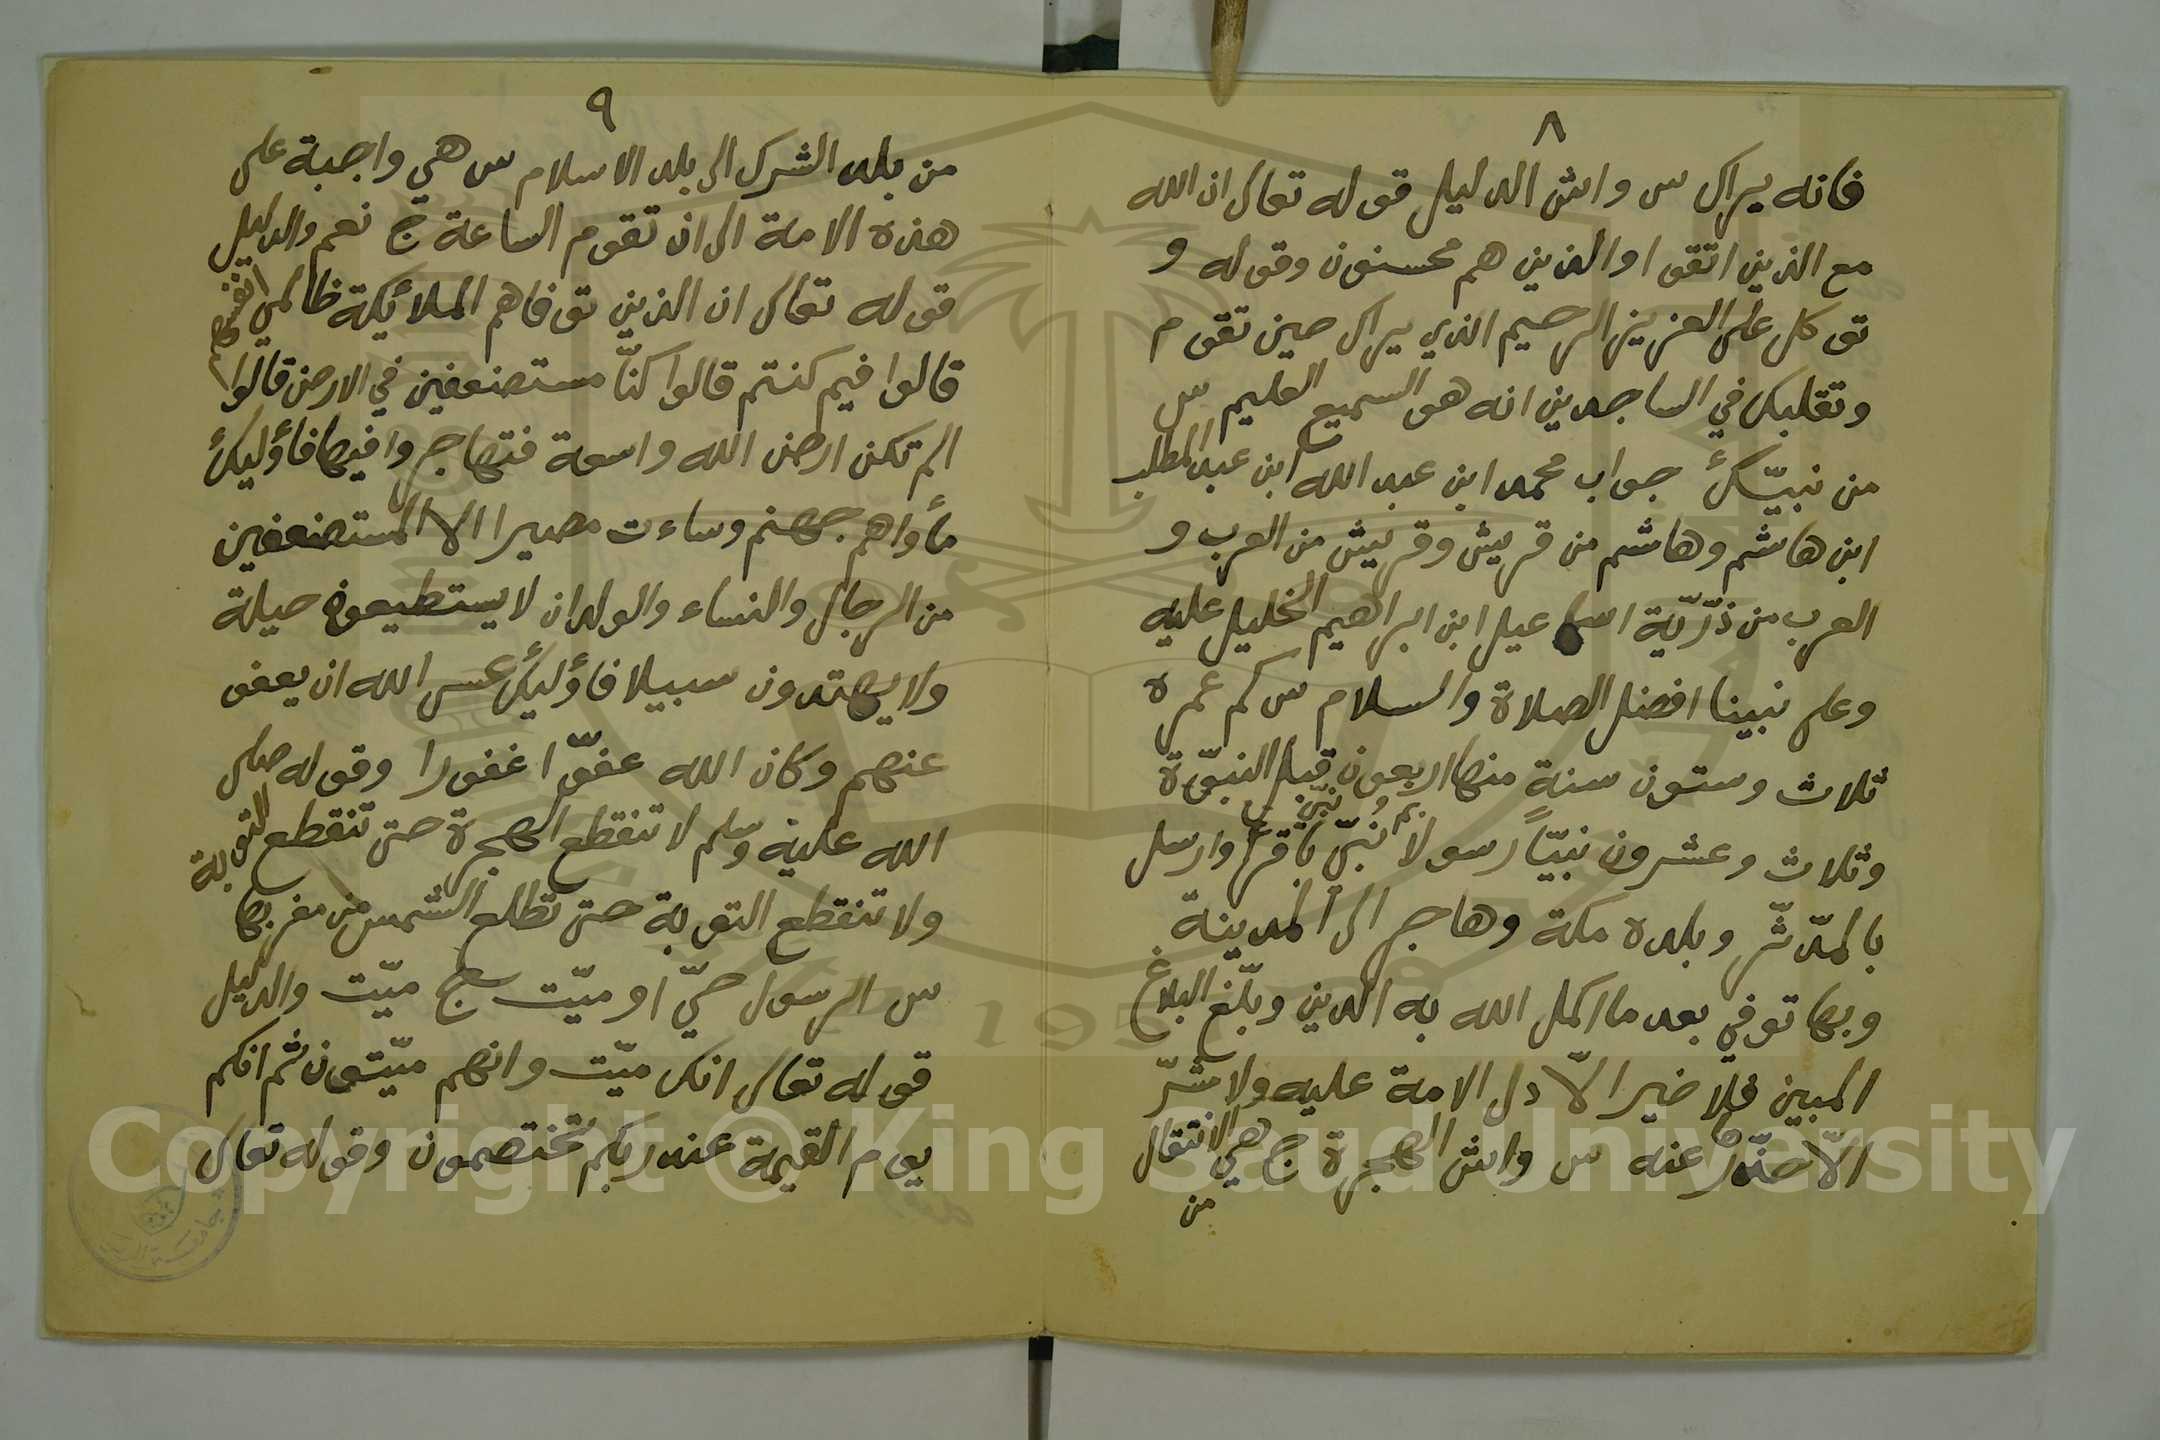 ٨
فانه يراك س واش الدليل قوله تعالى ان الله
مع الذين اتقوا والذين هم محسنون وقوله و
توكل على العزيز الرحيم الذي يراك حين تقوم
وتقلبك في الساجدين انه هو السميع العليم س
من نبيّك جواب محمد ابن عبد الله ابن عبد المطلب
ابن هاشم وهاشم من قريش وقريش من العرب و
العرب من ذرّيّة اسماعيل ابن ابراهيم الخليل عليه
وعلى نبينا افضل الصلاة والسلام س كم عمره
ثلاث وستون سنة منها اربعون قبل النبوّة
وثلاث وعشرون نبيّاً رسولا نُبّي باقرأ وارسل
بالمدّثّر وبلده مكة وهاجر الى المدينة
وبها توفي بعد ما اكمل الله به الدين وبلّغ البلاغ
المبين فلا خيرا الّا دل الامة عليه ولا شرّ
الّا حذّر عنه س واش الهجرة ج هي الانتقال
من
٩
من بلد الشرك الى بلد الاسلام س هي واجبة على
هذه الامة الى ان تقوم الساعة ج نعم والدليل
قوله تعالى ان الذين توفاهم الملائكة ظالمي انفسهم
قالوا فيم كنتم قالوا كنّا مستضعفين في الارض قالوا
الم تكن ارض الله واسعة فتهاجروا فيها فأوليك
مأواهم جهنم وساءت مصيرا الا المستضعفين
من الرجال والنساء والولدان لا يستطيعون حيلة
ولا يهتدون سبيلا فأوليك عسى الله ان يعفو
عنهم وكان الله عفوّا غفورا وقوله صلى
الله عليه وسلم لا تنقطع الهجرة حتى تنقطع التوبة
ولا تنقطع التوبة حتى تطلع الشمس من مغربها
س الرسول حيّ او ميّت ج ميّت والدليل
قوله تعالى انك ميّت وانهم ميّتون ثم انكم
يوم القيمة عند ربكم تختصمون وقوله تعالى
Copyright © King Saud University